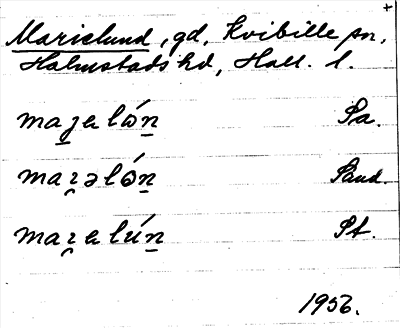 +
Marielund, gd, Kvibille sn,
Halmstads hd, Hall. l.
maɟelώn̲ Sa.
maɀ̨əlɷ́n̲ Sand.
maɀ̨elún̲ St.
1956.